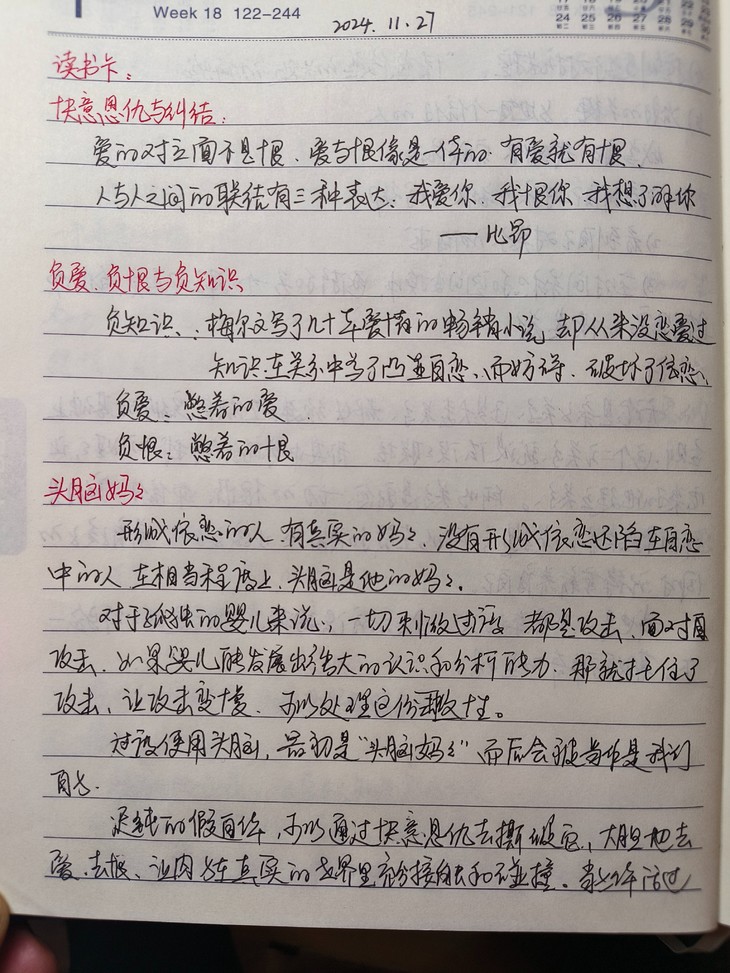 Week 18 122-244
2024.11.27
24 25 26 27 28
读书卡：
快意恩仇与纠结：
爱的对立面不是恨、爱与恨像是一体的、有爱就有恨、
人与人之间的联结有三种表达：我爱你、我恨你、我想了解你
——比昂
负爱、负恨与负知识
负知识：梅尔文写了几十年爱情的畅销小说、却从来没恋爱过
知识在关系中当了凸显自恋、而妨碍、破坏了依恋、
负爱：憋着的爱
负恨：憋着的恨
头脑妈妈
形成依恋的人、有真实的妈妈、没有形成依恋还陷在自恋
中的人、在相当程度上、头脑是他的妈妈。
对于孤独的婴儿来说、一切刺激过度、都是攻击、面对
攻击、如果婴儿能发展出强大的认识和分析能力、那就扛住了
攻击、让攻击变慢、可以处理这份
过度使用头脑，最初是“头脑妈妈”而后会被当作是我们
自己。
迟钝的假自体，可以通过快意恩仇去撕破它、大胆地去
爱、去恨、让肉身在真实的世界里充分接触和碰撞。当